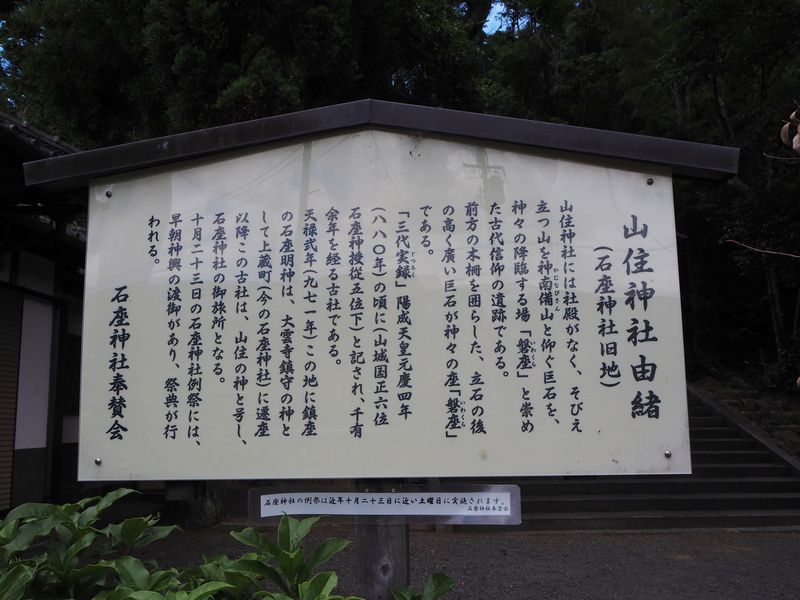 山住神社由緒
(石座神社旧地)
山住神社には社殿がなく、そびえ
立つ山を神南備山と仰ぐ巨石を、
かむなびさん
神々の降臨する場「磐座」と崇め
いわくら
た古代信仰の遺跡である。
前方の木柵を囲らした、立石の後
の高く廣い巨石が神々の座「磐座」
いわくら
である。
「三代実録」陽成天皇元慶四年
じつろく
(八八〇年)の頃に(山城国正六位
石座神授従五位下)と記され、千有
余年を経る古社である。
天禄弐年(九七一年)この地に鎮座
の石座明神は、大雲寺鎮守の神と
して上蔵町(今の石座神社)に遷座
以降この古社は、山住の神と号し、
石座神社の御旅所となる。
十月二十三日の石座神社例祭には、
早朝神輿の渡御があり、祭典が行
われる。
石座神社奉賛会
石座神社の例祭は近年十月二十三日に近い土曜日に実施されます。
石座神社奉賛会